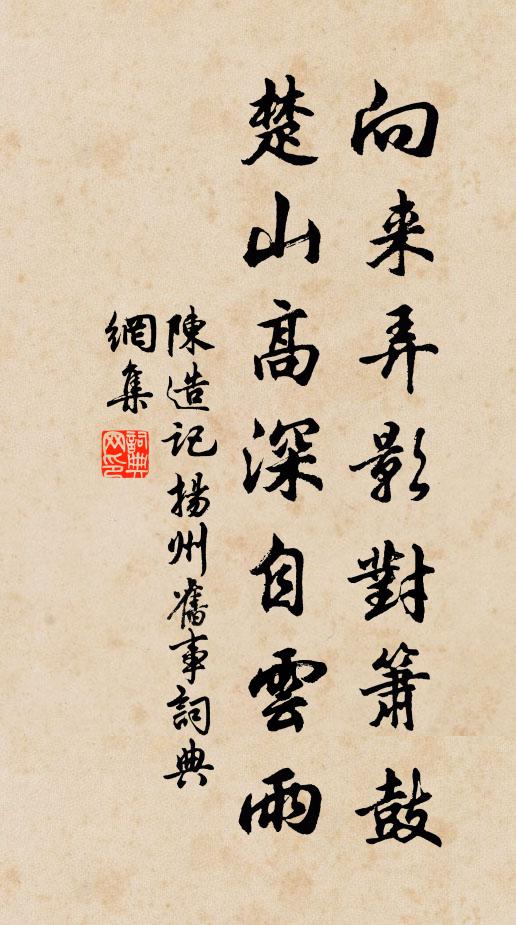 向来弄影對簫鼓
楚山高深自雲雨
陳造記揚州舊事詞典
網集
詞典網印